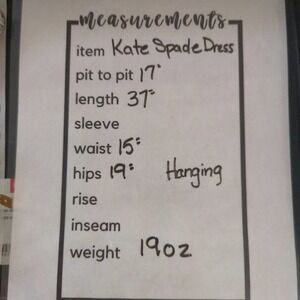 measurements
item Kate Spade Dress
pit to pit 17"
length 37"
sleeve
waist 15"
hips 19" Hanging
rise
inseam
weight 19oz